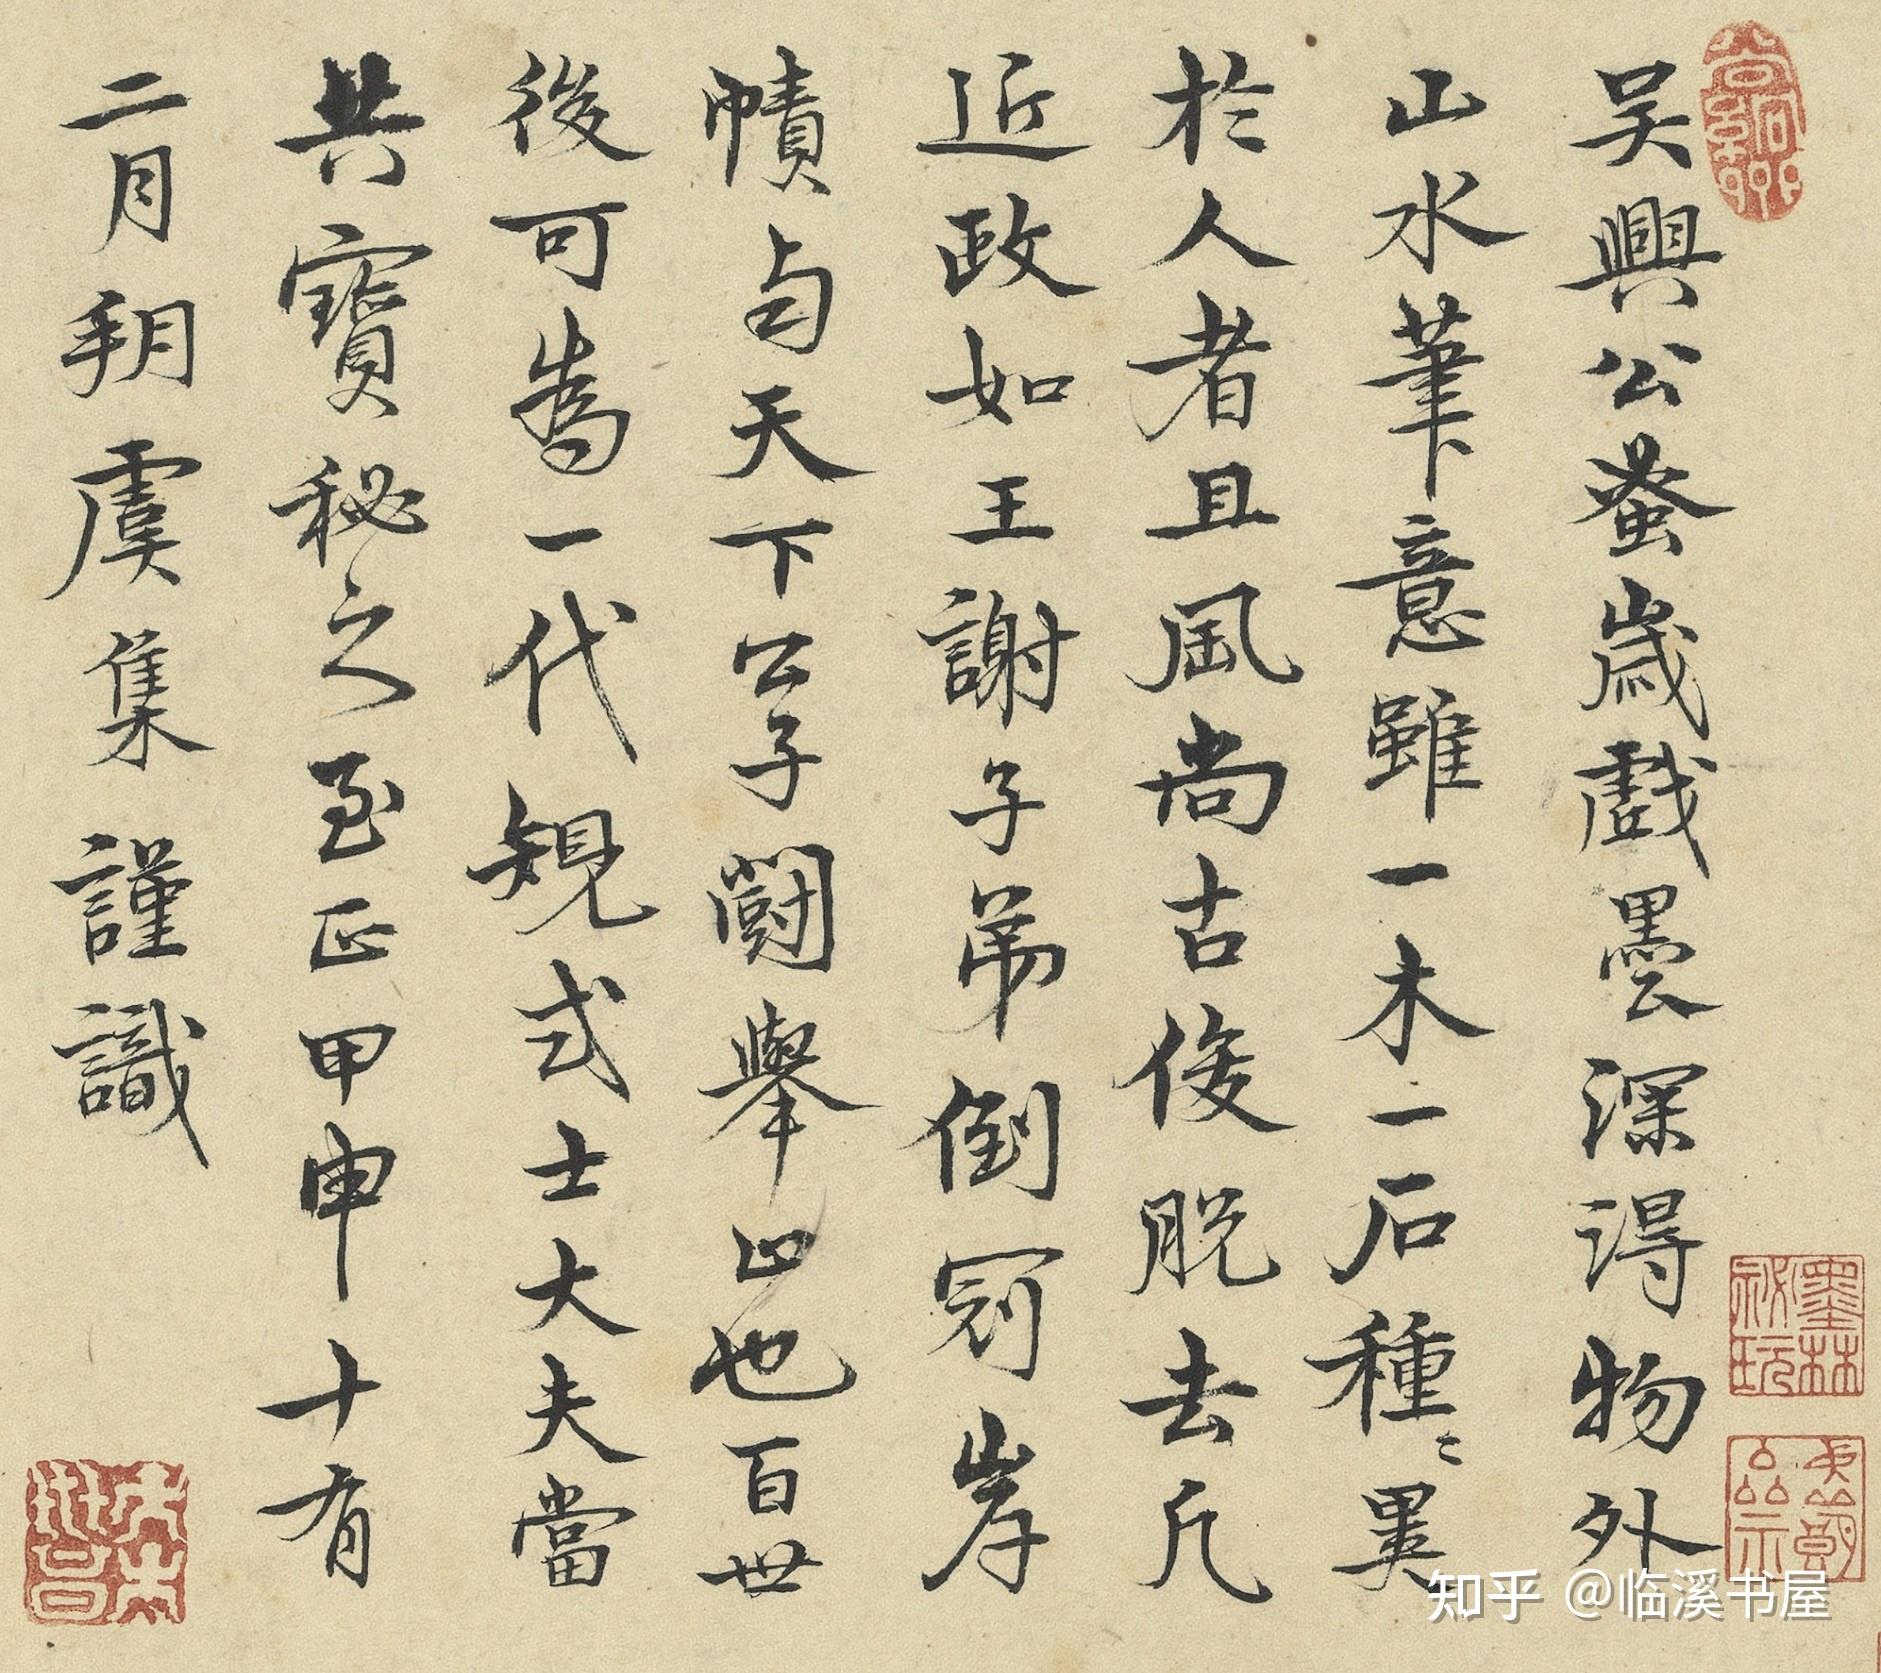 吳興公蚤歲戲墨深得物外
山水筆意雖一木一石種〻異
於人者且風尚古俊脫去凡
近政如王謝子弟倒冠岸
幘与天下公子鬪舉止也百世
後可為一代規式士大夫當
共寶秘之至正甲申十有
二月朔虞集謹識
墨林秘玩
知乎 @临溪书屋